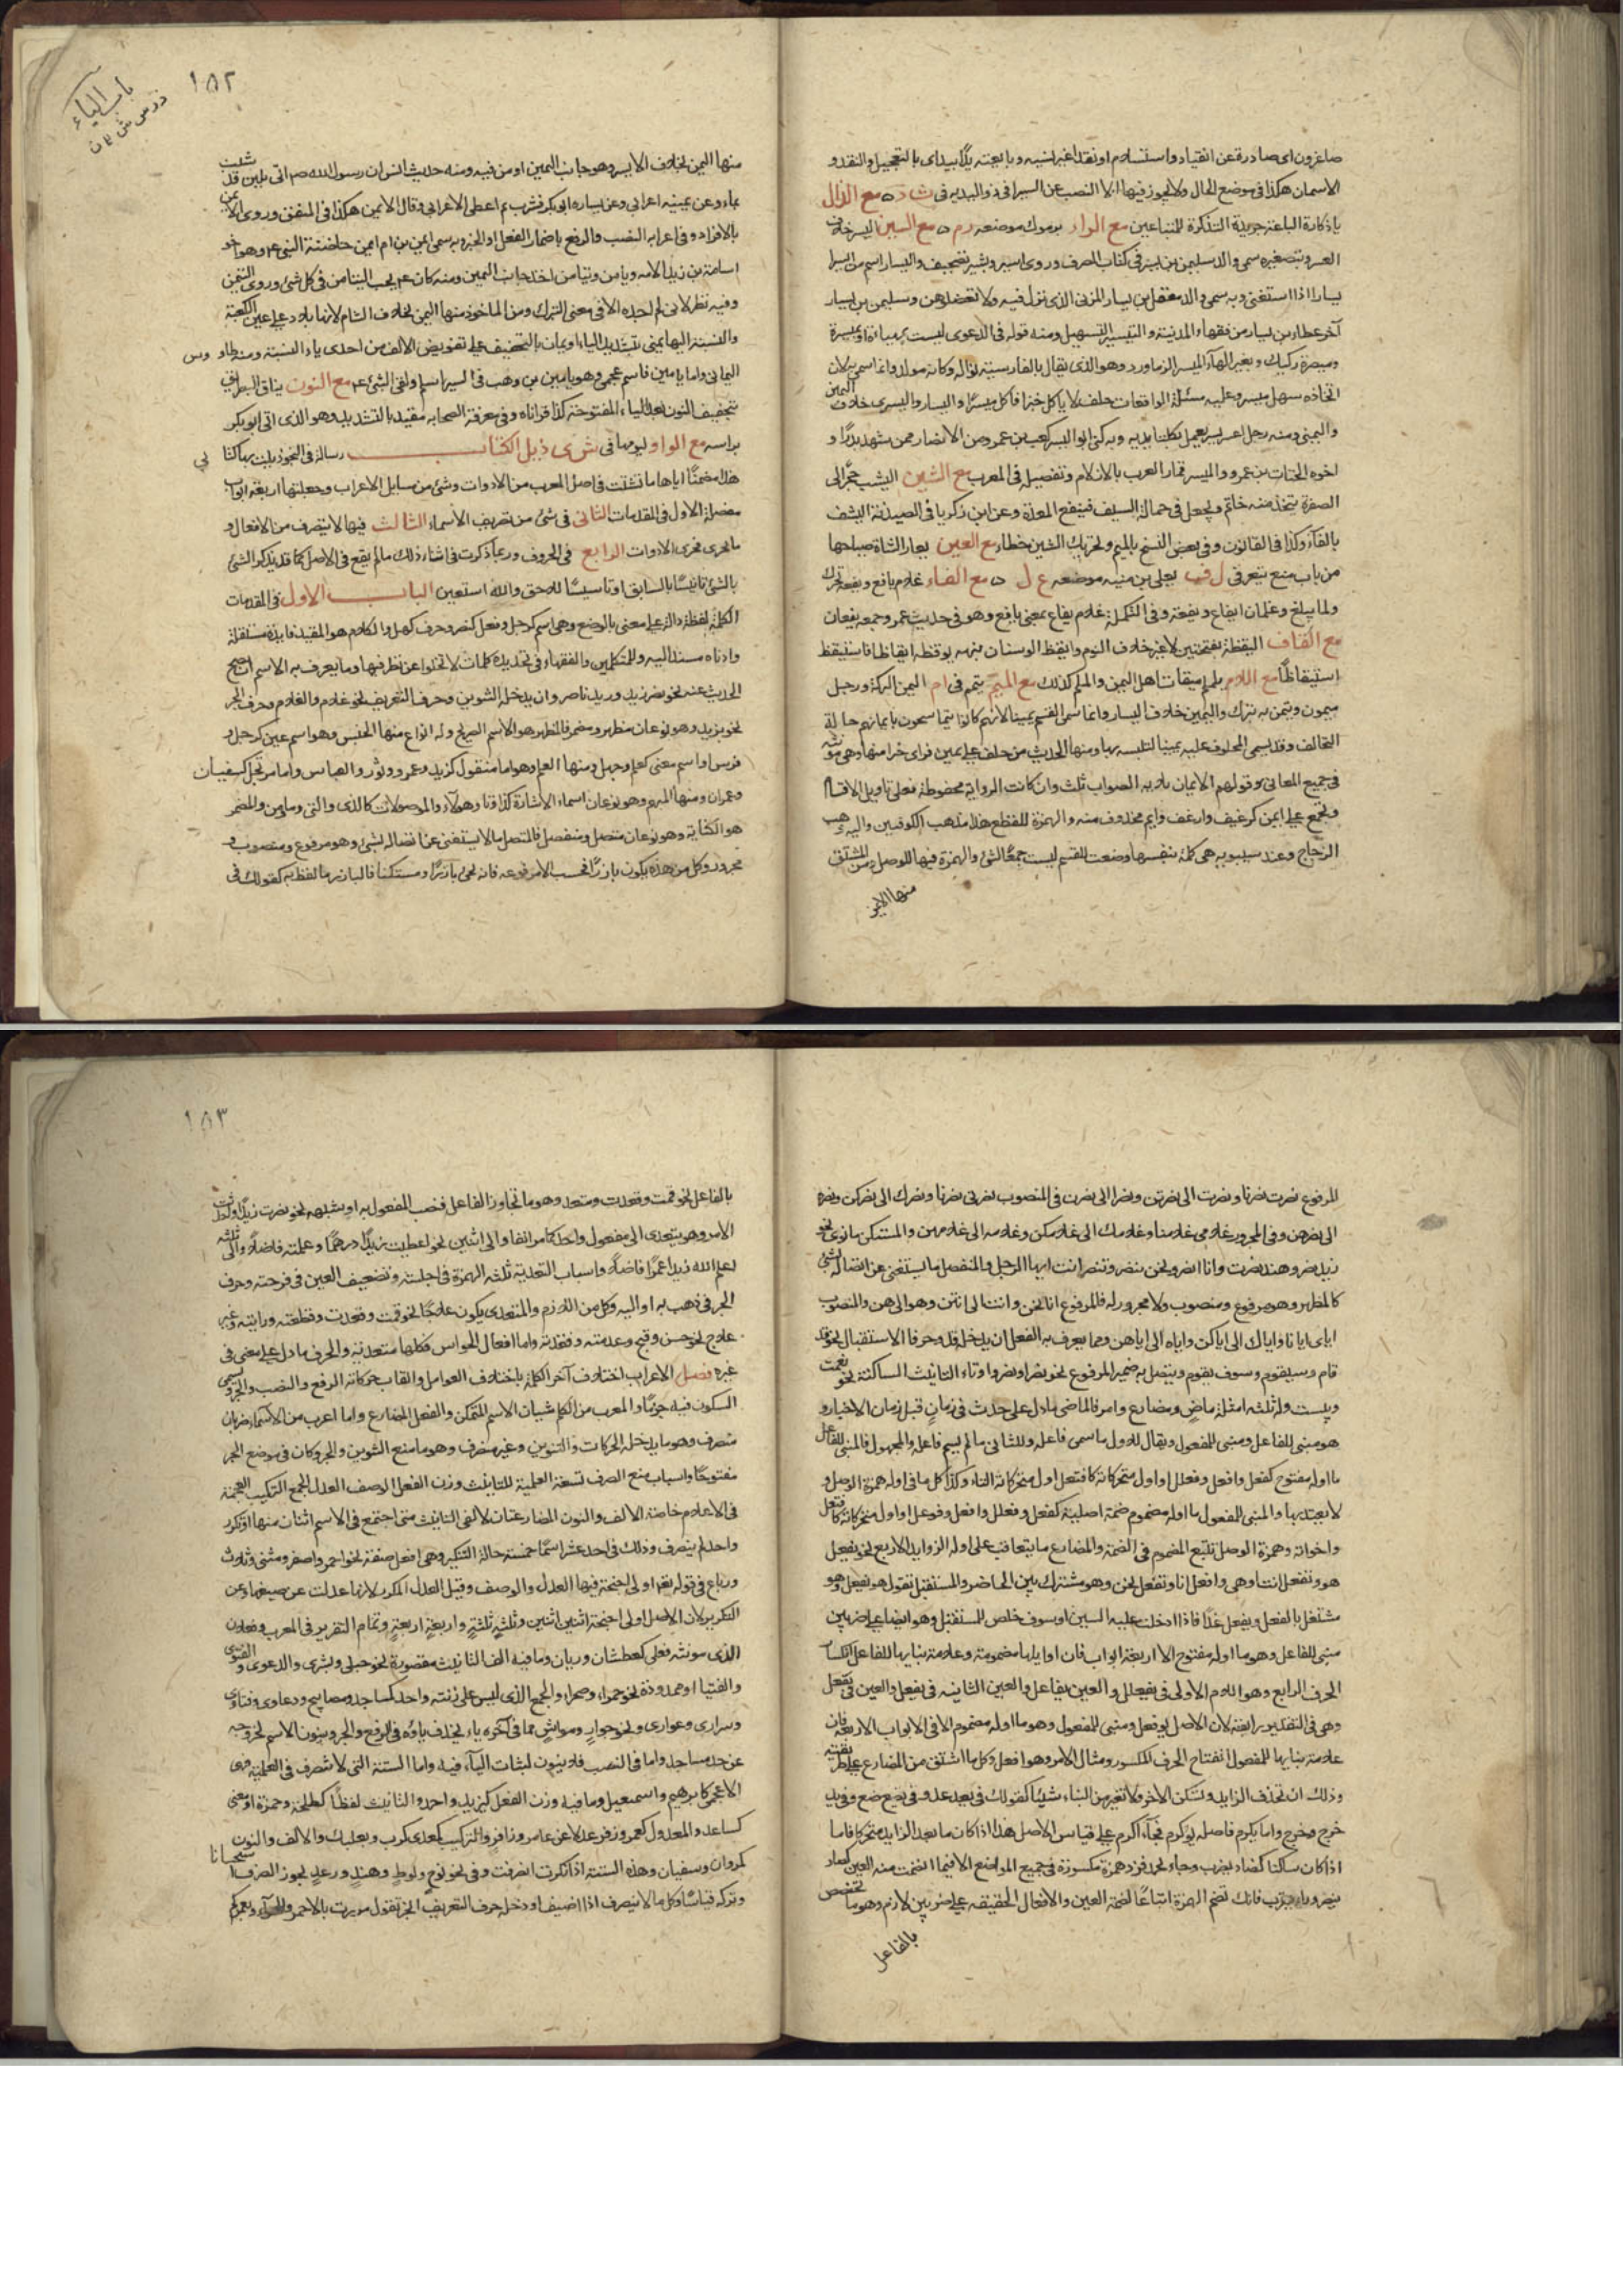 صاغرون اى صادرة عن انقياد واستسلام او نقدا غير نسيه وبايعته يدًا بيد اى بالتعجيل والنقد و
الاسمان هكذا فى موضع الحال ولا يجوز فيها الا النصب عن السيرافى ذو اليديه فى ث د ه مع الذال
ياذكارة الباعة جريدة التذكرة للتباعين مع الراء يرموك موضعه ر م ه مع السين اليسر خلاف
العسر وبتصغيره سمى والد سليمن بن يسير فى كتاب الصرف وروى اسير وبشير تصحيف واليسار اسم من ايسر
يسارا اذا استغنى وبه سمى والد معقل بن يسار المزنى الذى نزل فيه ولا تعضلوهن وسليمن بن يسار
آخر عطا بن يسار من فقهاء المدينة والتيسير التسهيل ومنه قوله فى الدعوى ليست بمهياة او ميسرة
وميصرة ركيك وبغير الهاء الميسر الزماورد وهو الذى يقال بالفارسية نواله وكانه مولد وانما سمى به لان
اتخاذه سهل ميسر وعليه مسئلة الواقعات حلف لا ياكل خبزا فاكل ميسرًا واليسار واليسرى خلاف اليمين
واليمنى ومنه رجل اعسر يسر يعمل بكلتا يديه وبه كنى ابو اليسر كعب بن عمرو من الانصار ممن شهد بدرًا و
اخوه الحتات بن عمرو والميسر قمار العرب بالازلام وتفصيله فى المعرب مع الشين اليشب حجر الى
الصفرة يتخذ منه خاتم ويجعل فى حمالة السيف فينفع المعدة وعن ابن زكريا فى الصيدنة اليشف
بالفاء وكذا فى القانون وفى بعض النسخ بالميم وتحريك الشين خطاء مع العين يعار الشاة صياحها
من باب منع تيعر فى ل ف يعلى بن منيه موضعه ع ل ه مع الفاء غلام يافع ويفعة تحرك
ولما يبلغ وغلمان ايفاع ويفعة وفى التكملة غلام يفاع بمعنى يافع وهو فى حديث عمر وجمعه يفعان
مع القاف اليقظة بفتحتين لا غير خلاف النوم وايقظ الوسنان نبهه يوقظه ايقاظا فاستيقظ
استيقاظًا مع اللام يلملم ميقات اهل اليمن والملم كذلك مع الميم يتمم فى ام اليمن البركة ورجل
ميمون وتيمن به تبرك واليمين خلاف اليسار وانما سمى القسم يمينا لانهم كانوا يتماسحون بايمانهم حالة
التحالف وقد يسمى المحلوف عليه يمينا لتلبسه بها ومنها الحديث من حلف على يمين فراى خيرا منها وهى مونثه
فى جميع المعانى وقولهم الايمان ثلاثة الصواب ثلث وان كانت الرواية محفوظة فعلى تاويل الاقسام
وتجمع على ايمن كرغيف وارغف وايم محذوف منه والهمزة للقطع هذا مذهب الكوفيين واليه ذهب
الزجاج وعند سيبويه هى كلمة بنفسها وضعت للقسم ليست جمعا لشئ والهمزة فيها للوصل ومن المشتق
منها الايمن
١٥٢
باب الياء
منها اليمن بخلاف الايسر وهو جانب اليمين او من فيه ومنه حديث انس ان رسول الله صم اتى بلبن قد شيب
بماء وعن يمينه اعرابى وعن يساره ابو بكر فشرب ثم اعطى الاعرابى وقال الايمن هكذا فى المتفق وروى الايمن
بالافراد وفى اعرابه النصب والرفع باضمار الفعل او الخبر وبه سمى ايمن بن ام ايمن حاضنة النبى عم وهو اخو
اسامة بن زيد لامه ويامن وتيامن اخذ جانب اليمين ومنه كان عم يحب التيامن فى كل شئ وروى التيمن
وفيه نظر لانى لم اجده الا فى معنى التبرك ومن الماخوذ منها اليمن بخلاف الشام لانها بلاد على يمين الكعبة
والنسبة اليها يمنى بتشديد الياء او يمان بالتخفيف على تعويض الالف من احدى ياء النسبة ومنه طاوس
اليمانى واما يامين فاسم عجمى وهو يامين بن وهب فى السير اسلم ولقى النبى عم مع النون يناق البطريق
بتخفيف النون بعد الياء المفتوحة كذا قراناه وفى معرفة الصحابه مقيد بالتشديد وهو الذى اتى ابو بكر
براسه مع الواو يومها فى ش ى ذيل الكتاب رسالة فى النحو ذيلت بها كتابى
هذا مضمنًا اياها ما تشتت فى اصل المعرب من الادوات وشئ من مسايل الاعراب وجعلتها اربعة ابواب
مفصلة الاول فى المقدمات الثانى فى شئ من تصريف الاسماء الثالث فيما لا ينصرف من الافعال و
ما يجرى مجرى الادوات الرابع فى الحروف وربما ذكرت فى اثناء ذلك ما لم يقع فى الاصل كما قد يذكر الشئ
بالشئ تانيسًا بالسابق او تاسيسًا للاحق والله استعين الباب الاول فى المقدمات
الكلمة لفظة دالة على معنى بالوضع وهى اسم كرجل وفعل كنصر وحرف كهل والكلام هو المفيد فايدة مستقلة
وادناه مسند اليه وللمتكلمين والفقهاء فى تحديده كلمات لا تخلوا عن نظر فيها وما يعرف به الاسم ان صح
الحديث عنه نحو نصر زيد وزيد ناصر وان يدخله التنوين وحرف التعريف نحو غلام والغلام وحرف الجر
نحو بزيد وهو نوعان مظهر ومضمر فالمظهر هو الاسم الصريح وله انواع منها الجنس وهو اسم عين كرجل و
فرس او اسم معنى كعلم وجهل ومنها العلم وهو اما منقول كزيد وعمرو وثور والعباس واما مرتجل كسفيان
وعمران ومنها المبهم وهو نوعان اسماء الاشارة كذا وتا وهؤلاء والموصولات كالذى والتى وما ومن والمضمر
هو الكناية وهو نوعان متصل ومنفصل فالمتصل ما لا يستغنى عن اتصاله بشئ وهو مرفوع ومنصوب و
مجرور وكل من هذه يكون بارزًا فحسب الا مرفوعه فانه يجئ بارزًا ومستكنا فالبارز ما لفظ به كقولك فى
المرفوع نصرت نصرنا ونصرت الى نصرتن ونصرا الى نصرن فى المنصوب نصرنى نصرنا ونصرك الى نصركن ونصره
الى نصرهن وفى المجرور غلامى غلامنا وغلامك الى غلامكن وغلامه الى غلامهن والمستكن ما نوى نحو
زيد نصر وهند نصرت وانا انصر ونحن ننصر وتنصر انت ايها الرجل والمنفصل ما يستغنى عن اتصاله بشئ
كالمظهر وهو مرفوع ومنصوب ولا مجرور له فالمرفوع انا نحن وانت الى انتن وهو الى هن والمنصوب
اياى ايانا واياك الى اياكن واياه الى اياهن ومما يعرف به الفعل ان يدخله قد وحرفا الاستقبال نحو قد
قام وسيقوم وسوف يقوم ويتصل به ضمير المرفوع نحو نصرا ونصروا وتاء التانيث الساكنة نحو نعمت
وبئست وله ثلثه امثلة ماضٍ ومضارع وامر فالماضى ما دل على حدث فى زمان قبل زمان الاخبار و
هو مبنى للفاعل ومبنى للمفعول ويقال للاول ما سمى فاعله وللثانى ما لم يسم فاعله والمجهول فالمبنى للفاعل
ما اوله مفتوح كفعل وافعل وفعلل او اول متحركاته كافتعل اول متحركاته التاء وكذا كل ما فى اوله همزة الوصل و
لا يعتد بها والمبنى للمفعول ما اوله مضموم ضمة اصلية كفعل وفعلل وافعل وفوعل او اول متحركاته كافتعل
واخواته وهمزة الوصل تتبع المضموم فى الضمة والمضارع ما يتعاقب على اوله الزوايد الاربع نحو يفعل
هو وتفعل انت او هى وافعل انا ونفعل نحن وهو مشترك بين الحاضر والمستقبل تقول هو يفعل وهو
مشتغل بالفعل ويفعل غدًا فاذا ادخلت عليه السين او سوف خلص للمستقبل وهو ايضا على ضربين
مبنى للفاعل وهو ما اوله مفتوح الا اربعة ابواب فان اوايلها مضمومة وعلامة بنايها للفاعل انكسار
الحرف الرابع وهو اللام الاولى فى يفعلل والعين يفاعل والعين الثانيه فى يفعل والعين فى يفعل
وهى فى التقدير رابعة لان الاصل يوفعل ومبنى للمفعول وهو ما اوله مضموم الا فى الابواب الاربعة فان
علامة بنايها للمفعول انفتاح الحرف المكسور ومثال الامر وهو افعل وكل ما اشتق من المضارع على طريقته
وذلك ان تحذف الزايد وتسكن الاخر ولا تغير من البناء شيئا كقولك فى يعد عد وفى يضع ضع وفى يد
خرج دحرج واما يكرم فاصله يؤكرم فجاء اكرم على قياس الاصل هذا اذا كان ما بعد الزايد متحركا فاما
اذا كان ساكنا كضاد يضرب وحاء تحمد فزد همزة مكسورة فى جميع المواضع الا فيما انضمت منه العين كصاد
ينصر فانك تضم الهمزة اتباعًا لضمة العين والافعال الحقيقيه على ضربين لازم وهو ما تخصص
بالفاعل
١٥٣
بالفاعل نحو قمت وقعدت ومتعد وهو ما تجاوز الفاعل فنصب المفعول به او شبهه نحو نصرت زيدًا
الامر وهو يتعدى الى مفعول واحد كما مر انفا والى اثنين نحو اعطيت زيدًا درهمًا وعلمته فاضلًا والى ثلثه
اعلم الله زيدا عمرًا فاضلًا واسباب التعدية ثلثه الهمزة فى اجلسته وتضعيف العين فى فرحته وحرف
الجر فى ذهب به او اليه وكل من اللازم والمتعدى يكون علاجًا نحو قمت وقعدت وقطعته ورايته وغير
علاج نحو حسن وقبح وعدمته وفقدته واما افعال الحواس فكلها متعدية والحرف ما دل على معنى فى
غيره فصل الاعراب اختلاف آخر الكلمة باختلاف العوامل والقاب حركاته الرفع والنصب والجر ويسمى
السكون فيه جزمًا والمعرب من الكلم شيان الاسم المتمكن والفعل المضارع واما اعرب من الاسماء ضربان
منصرف وهو ما يدخله الحركات والتنوين وغير منصرف وهو ما منع التنوين والجر وكان فى موضع الجر
مفتوحًا واسباب منع الصرف تسعة العلمية التانيث وزن الفعل الوصف العدل الجمع التركيب العجمة
فى الاعلام خاصة الالف والنون المضارعتان لالفى التانيث متى اجتمع فى الاسم اثنان منها او تكرر
واحد لم ينصرف وذلك فى احد عشر اسمًا خمسة حالة التنكير وهى افعل صفة نحو احمر واصفر ومثنى وثلاث
ورباع فى قوله تعم اولى اجنحة فيها العدل والوصف وقيل العدل المكرر لانها عدلت عن صيغها وعن
التكرير لان الاصل اولى اجنحة اثنين اثنين وثلثةٍ ثلثةٍ واربعةٍ اربعةٍ وتمام التقرير فى المعرب وفعلان
الذى مونثه فعلى كعطشان وريان وما فيه الف التانيث مقصورة نحو حبلى وبشرى والدعوى والفتوى
والفتيا او ممدودة نحو حمراء وصحراء والجمع الذى ليس على زنته واحد كمساجد ومصابيح ودعاوى وفتاوى
وسرارى وعوارى ونحو جوارٍ ومواشٍ مما فى آخره ياء تحذف ياؤه فى الرفع والجر وينون الاسم لخروجه
عن حد مساجد واما فى النصب فلا ينون لثبات الياء فيه واما الستة التى لا تنصرف فى العلمية فهى
الاعجمى كابرهيم واسمعيل وما فيه وزن الفعل كيزيد واحمد والتانيث لفظًا كطلحة وحمزة او معنى
كسعاد والمعدول كعمر وزفر عدلا عن عامر وزافر والتركيب كمعدى كرب وبعلبك والالف والنون
كمروان وسفيان وهذه الستة اذا نكرت انصرفت وفى نحو نوح ولوط وهند ودعد يجوز الصرف استحسانا
وتركه قياسًا وكل ما لا ينصرف اذا اضيف او دخله حرف التعريف انجر تقول مررت بالاحمر والحمراء وبعمركم